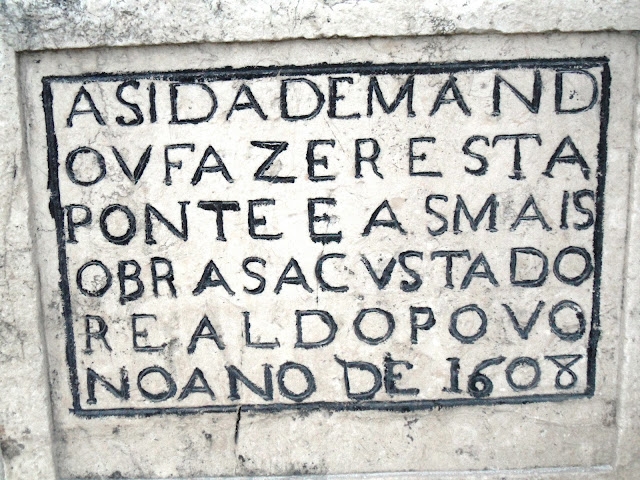 ASIDADEMAND
OVFAZERESTA
PONTEEASMAIS
OBRASACVSTADO
REALDOPOVO
NOANO DE 1608